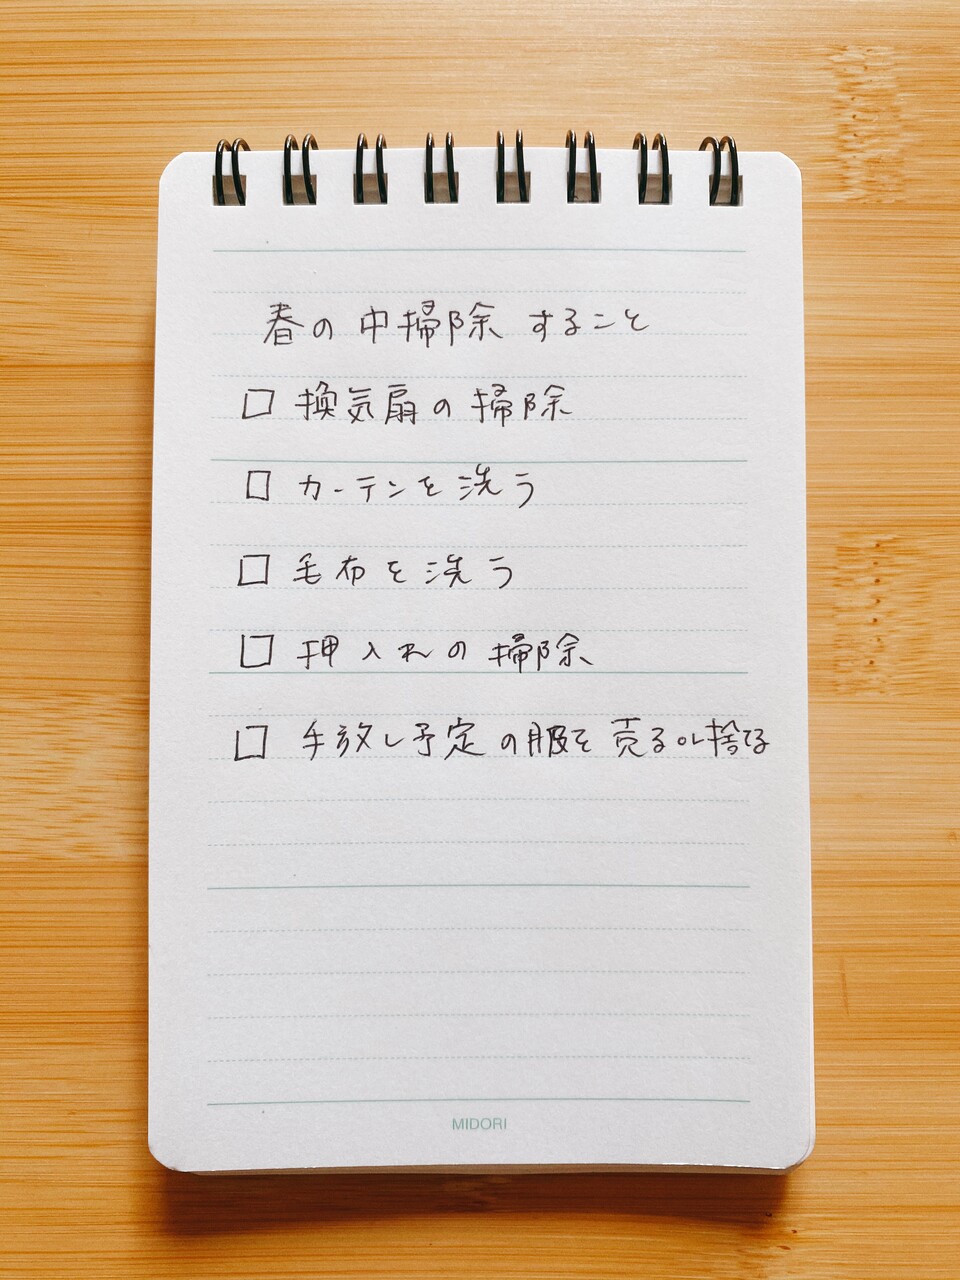 春の中掃除すること
□ 換気扇の掃除
□ カーテンを洗う
□ 毛布を洗う
□ 押入れの掃除
□ 手放し予定の服を売るor捨てる
MIDORI